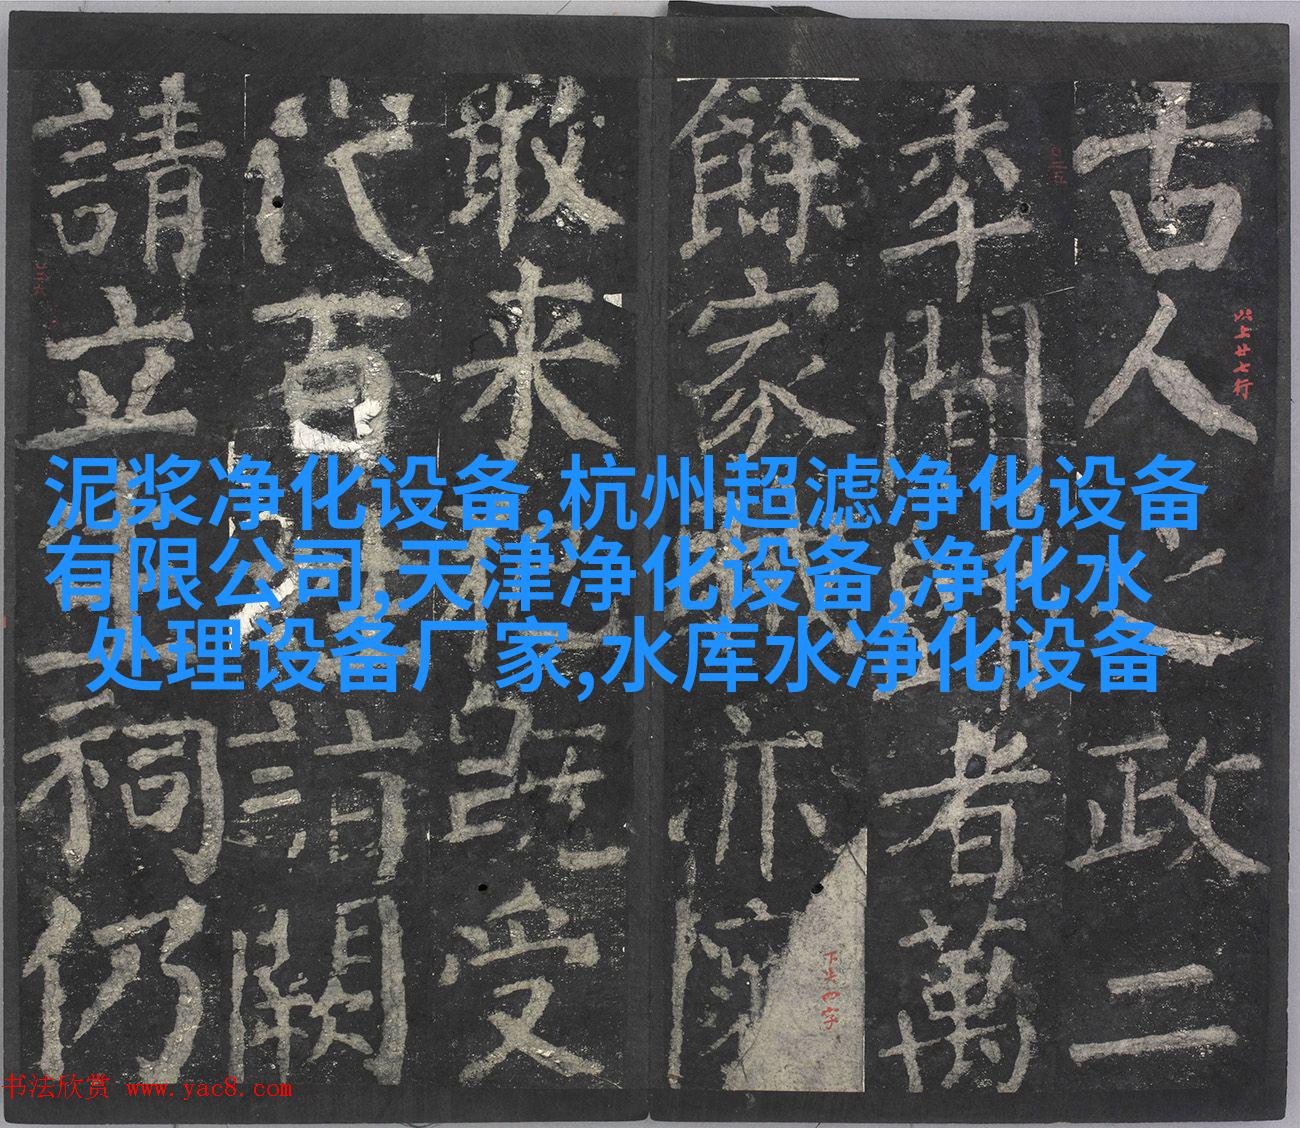 古人之政二
秊間歸者萬
餘家職亦
敢来既受
代百請闕
請立生祠仍
以上廿七行
下米四字
泥浆净化设备,杭州超滤净化设备
有限公司,天津净化设备,净化水
处理设备厂家,水库水净化设备
书法欣赏 www.yac8.com